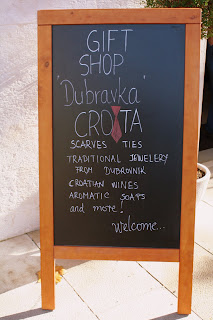 GIFT
SHOP
'Dubravka'
CROATA
SCARVES TIES
TRADITIONAL JEWELERY
FROM DUBROVNIK
CROATIAN WINES
AROMATIC SOAPS
and more!
welcome...